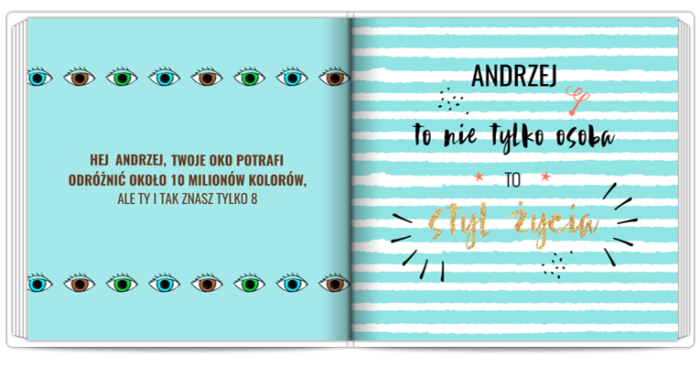 HEJ ANDRZEJ, TWOJE OKO POTRAFI
ODRÓŻNIĆ OKOŁO 10 MILIONÓW KOLORÓW,
ALE TY I TAK ZNASZ TYLKO 8
ANDRZEJ
to nie tylko osoba
TO
styl życia